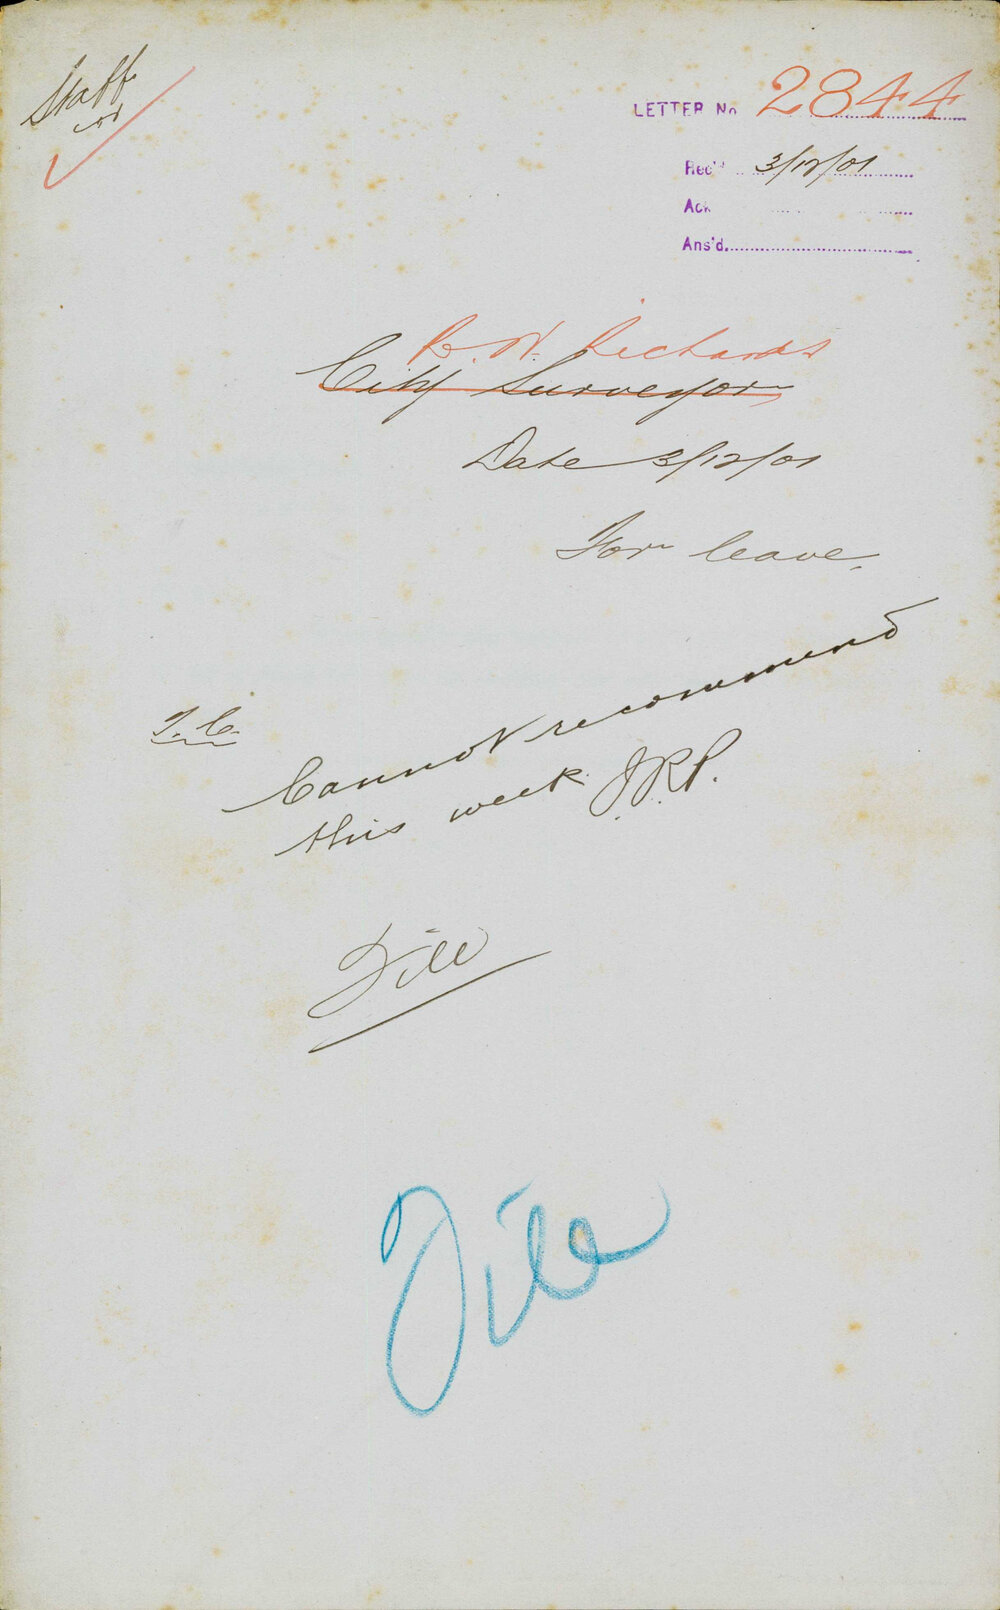 Staff
LETTER No 2844
Rec'd 3/12/01
Ack
Ans'd
R. W. Richards
City Surveyor
Date 3/12/01
For leave.
T. C.
Cannot recommend
this week J.R.P.
File
File